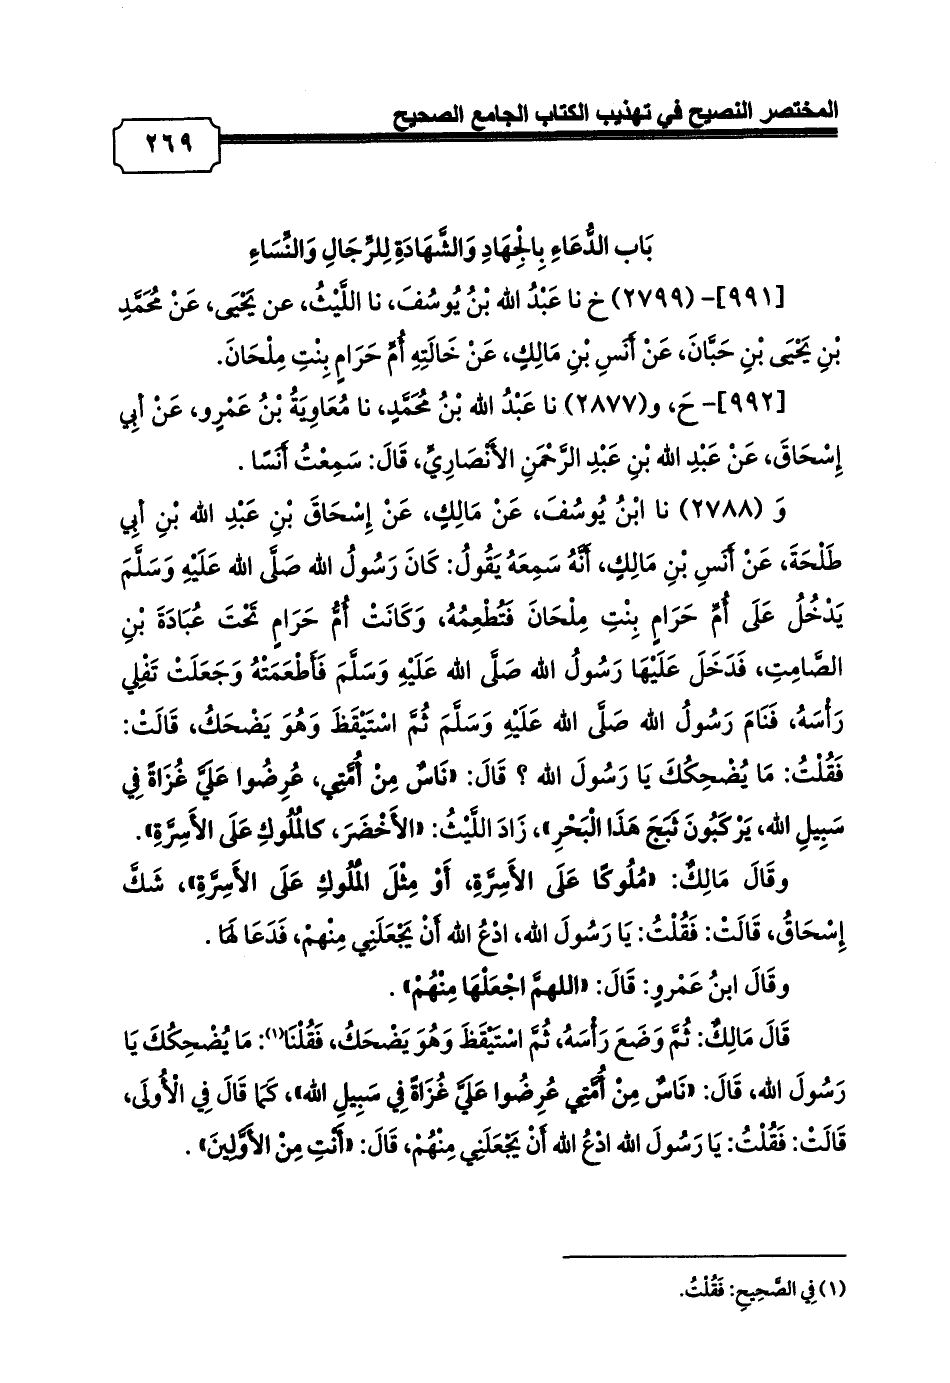 المختصر النصيح في تهذيب الكتاب الجامع الصحيح
٢٦٩
بَاب الدُّعَاءِ بِالْجِهَادِ وَالشَّهَادَةِ لِلرِّجَالِ وَالنِّسَاءِ
[٩٩١]- (٢٧٩٩) خ نا عَبْدُ الله بْنُ يُوسُفَ، نا اللَّيْثُ، عن يَحْيَى، عَنْ مُحَمَّدِ
بْنِ يَحْيَى بْنِ حَبَّانَ، عَنْ أَنَسِ بْنِ مَالِكٍ، عَنْ خَالَتِهِ أُمِّ حَرَامٍ بِنْتِ مِلْحَانَ.
[٩٩٢]- حَ، و(٢٨٧٧) نا عَبْدُ الله بْنُ مُحَمَّدٍ، نا مُعَاوِيَةُ بْنُ عَمْرٍو، عَنْ أبِي
إِسْحَاقَ، عَنْ عَبْدِ الله بْنِ عَبْدِ الرَّحْمَنِ الأَنْصَارِيِّ، قَالَ: سَمِعْتُ أَنَسًا .
وَ (٢٧٨٨) نا ابْنُ يُوسُفَ، عَنْ مَالِكٍ، عَنْ إِسْحَاقَ بْنِ عَبْدِ الله بْنِ أبِي
طَلْحَةَ، عَنْ أَنَسِ بْنِ مَالِكٍ، أَنَّهُ سَمِعَهُ يَقُولُ: كَانَ رَسُولُ الله صَلَّى الله عَلَيْهِ وَسَلَّمَ
يَدْخُلُ عَلَى أُمِّ حَرَامٍ بِنْتِ مِلْحَانَ فَتُطْعِمُهُ، وَكَانَتْ أُمُّ حَرَامٍ تَحْتَ عُبَادَةَ بْنِ
الصَّامِتِ، فَدَخَلَ عَلَيْهَا رَسُولُ الله صَلَّى الله عَلَيْهِ وَسَلَّمَ فَأَطْعَمَتْهُ وَجَعَلَتْ تَفْلِي
رَأْسَهُ، فَنَامَ رَسُولُ الله صَلَّى الله عَلَيْهِ وَسَلَّمَ ثُمَّ اسْتَيْقَظَ وَهُوَ يَضْحَكُ، قَالَتْ:
فَقُلْتُ: مَا يُضْحِكُكَ يَا رَسُولَ الله ؟ قَالَ: «نَاسٌ مِنْ أُمَّتِي، عُرِضُوا عَلَيَّ غُزَاةً فِي
سَبِيلِ الله، يَرْكَبُونَ ثَبَجَ هَذَا الْبَحْرِ»، زَادَ اللَّيْثُ: «الأَخْضَرَ، كالمُلُوكِ عَلَى الأَسِرَّةِ».
وقَالَ مَالِكٌ: «مُلُوكًا عَلَى الأَسِرَّةِ، أَوْ مِثْلَ المُلُوكِ عَلَى الأَسِرَّةِ»، شَكَّ
إِسْحَاقُ، قَالَتْ: فَقُلْتُ: يَا رَسُولَ الله، ادْعُ الله أَنْ يَجْعَلَنِي مِنْهمْ، فَدَعَا لَهَا .
وقَالَ ابنُ عَمْرٍو: قَالَ: «اللهمَّ اجْعَلْهَا مِنْهُمْ» .
قَالَ مَالِكٌ: ثُمَّ وَضَعَ رَأْسَهُ، ثُمَّ اسْتَيْقَظَ وَهُوَ يَضْحَكُ، فَقُلْنَا(١): مَا يُضْحِكُكَ يَا
رَسُولَ الله، قَالَ: «نَاسٌ مِنْ أُمَّتِي عُرِضُوا عَلَيَّ غُزَاةً فِي سَبِيلِ الله»، كَمَا قَالَ فِي الْأُولَى،
قَالَتْ: فَقُلْتُ: يَا رَسُولَ الله ادْعُ الله أَنْ يَجْعَلَنِي مِنْهُمْ، قَالَ: «أَنْتِ مِنْ الأَوَّلِينَ» .
(١) فِي الصَّحِيحِ: فَقُلْتُ.